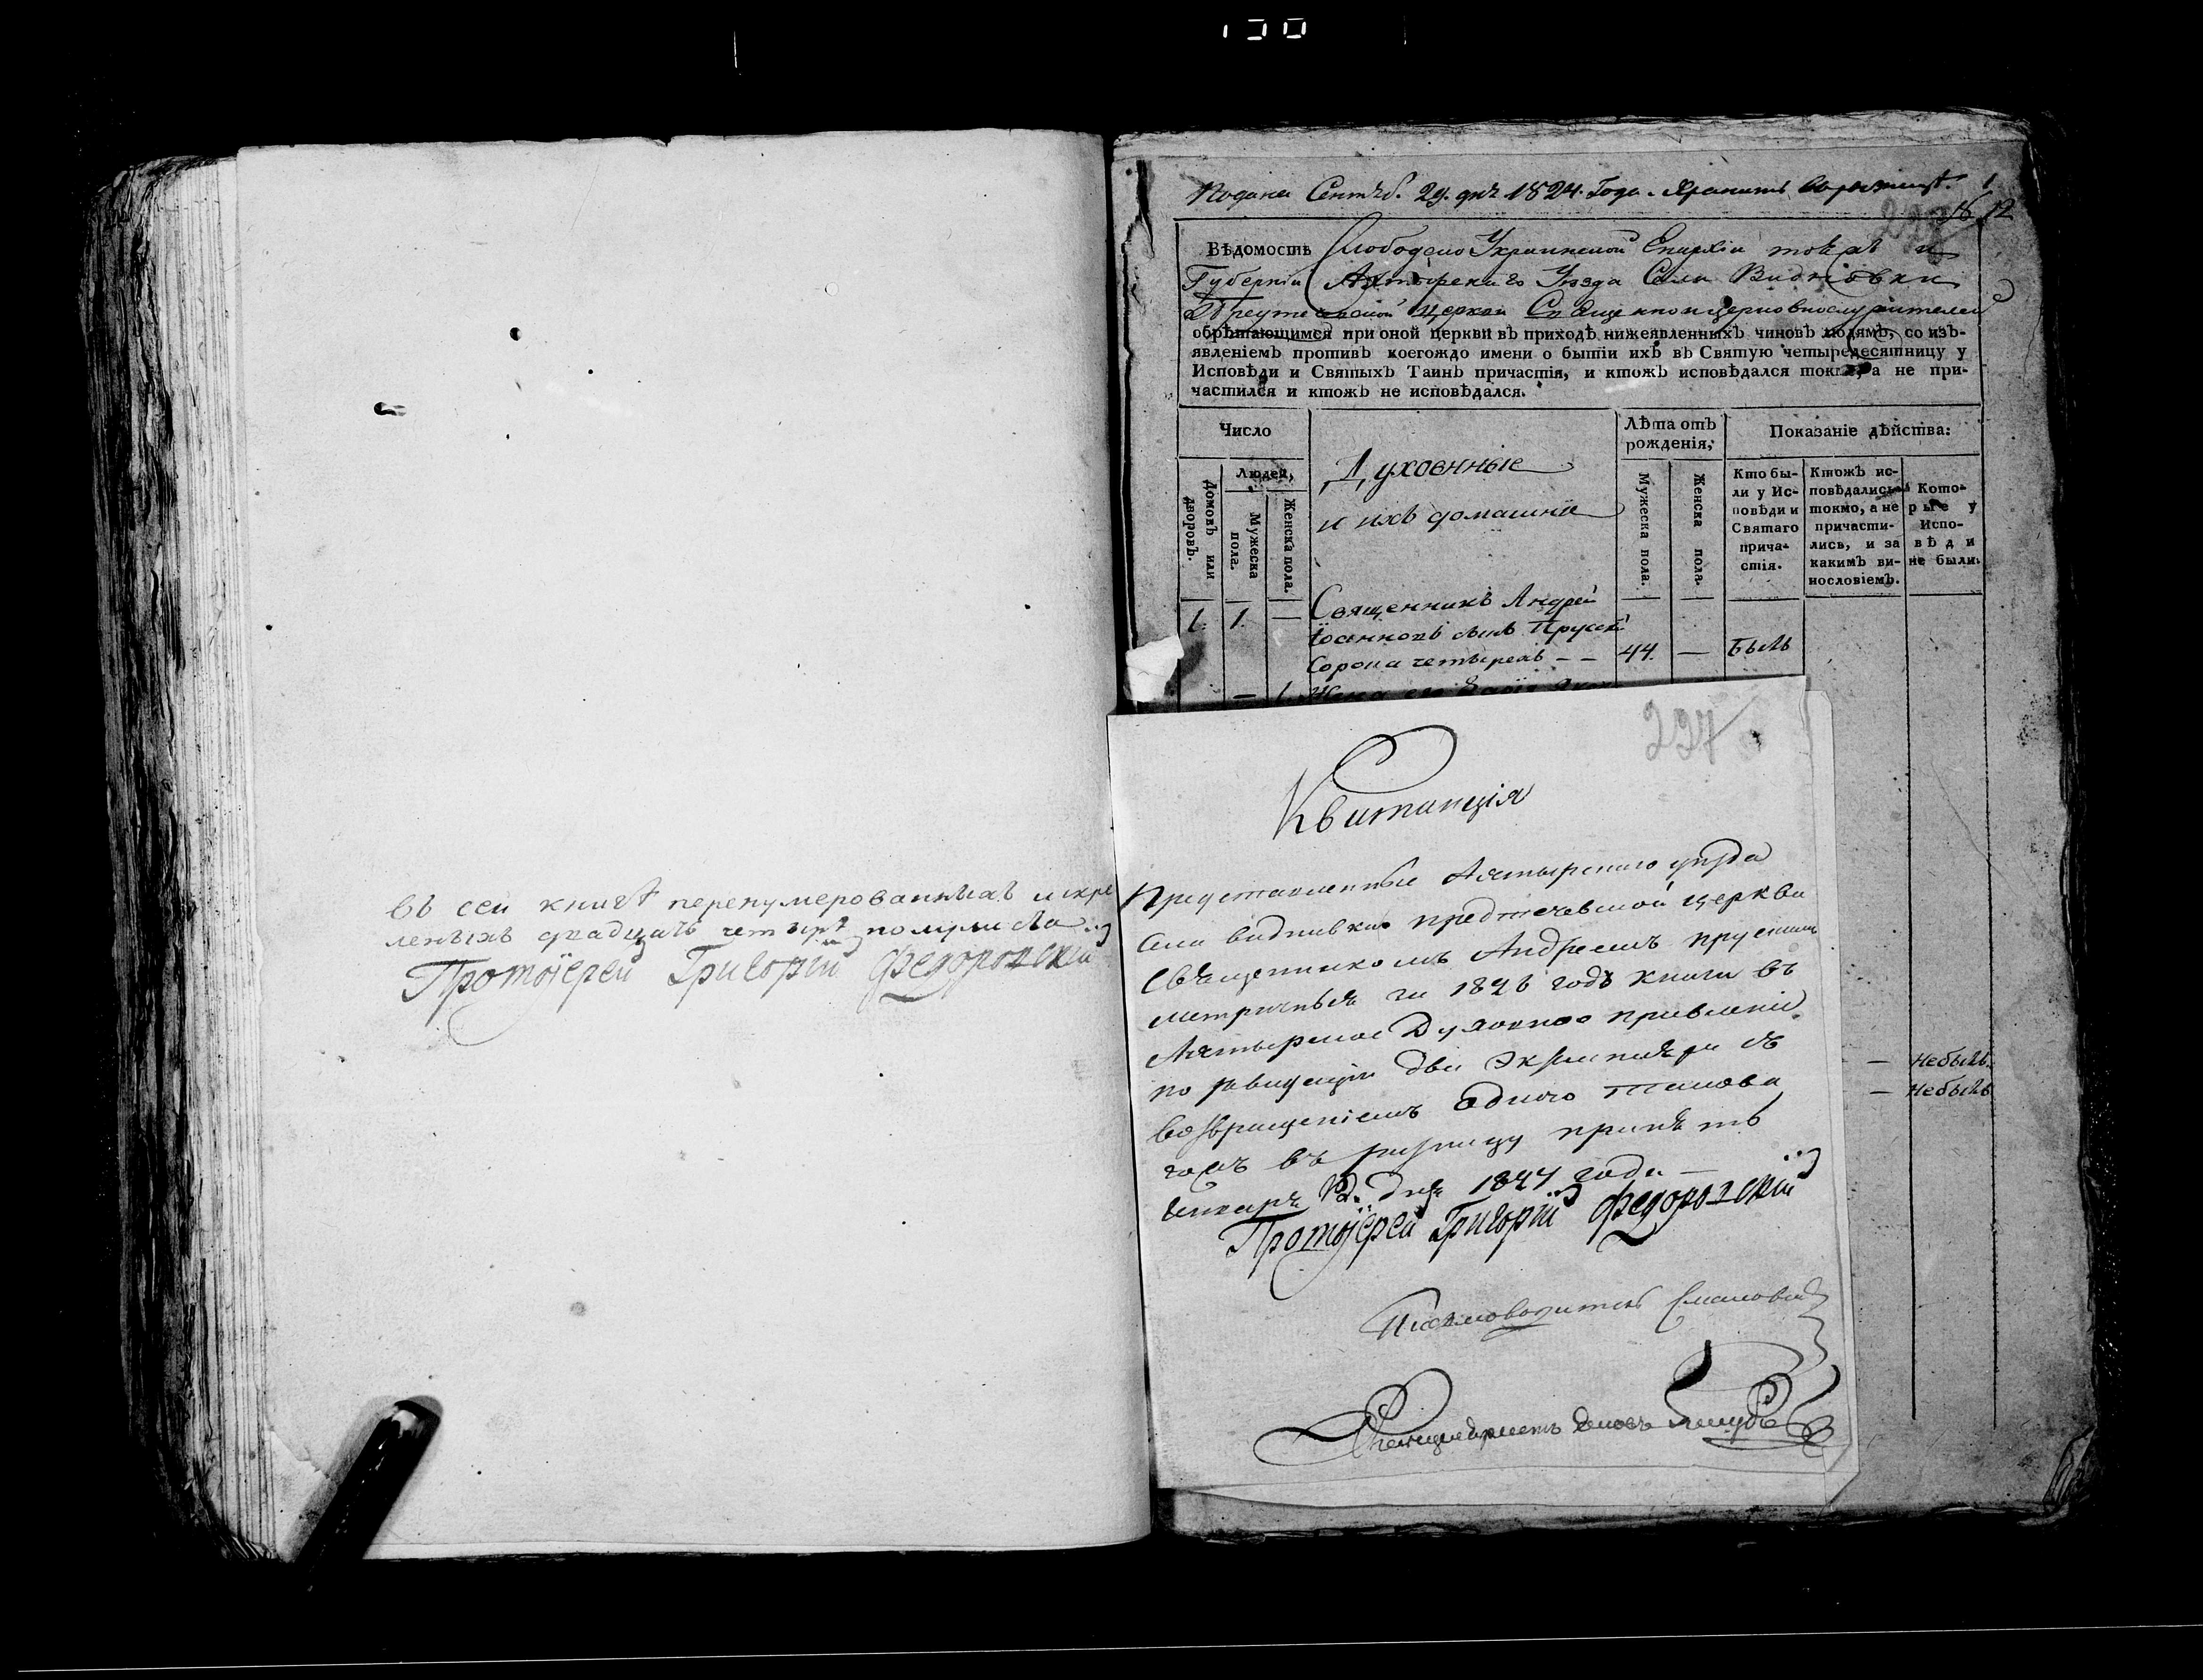 въ сей книгѣ перенумерованныхъ и скре
пленыхъ двадцать четыре полулиста
Протоіерей Григорій Федоровскій
Подана Сентяб. 29. дня 1824. Года. Хранить
Вѣдомость Слободско Украинской Епархіи тояжъ и
Губерніи Ахтырскаго Уѣзда Села
церкви Священно и церковнослужителей
обрѣтающимся при оной церкви въ приходѣ нижеявленныхъ чиновъ людямъ, со изъ-
явленіемъ противъ коегождо имени о бытіи ихъ въ Святую четыредесятницу у
Исповѣди и Святыхъ Таинъ причастія, и ктожъ исповѣдался токмо, а не при-
частился и ктожъ не исповѣдался.
Число
Людей,
Домовъ или дворовъ.
Мужеска пола.
Женска пола.
Духовные
и ихъ домашніе
Лѣта отъ
рожденія,
Мужеска пола.
Женска пола.
Показаніе дѣйства:
Кто бы-
ли у Ис-
повѣди и
Святаго
прича-
стія.
Ктожъ ис-
повѣдались
токмо, а не
причасти-
лись, и за
какимъ ви-
нословіемъ.
Кото-
рые у
Испо-
вѣди
не были.
1. 1. — Священникъ Андрей
Іоанновъ сынъ Прускій
Сорока четырехъ — — 44. — былъ
— 1 Жена его
— Небылъ.
— Небылъ
227
Квитанція
Представленные Ахтырскаго уѣзда
села предтечевской церкви
Священникомъ Андреемъ Прускимъ
метричныя за 1826 годъ книги въ
Ахтырское Духовное правленіе
по два экземпляра съ
возвращеніемъ одного таковa
въ ризницу принять
Генваря дня 1827 года
Протоіерей Григорій Федоровскій
Письмоводитель
Канцеляристъ